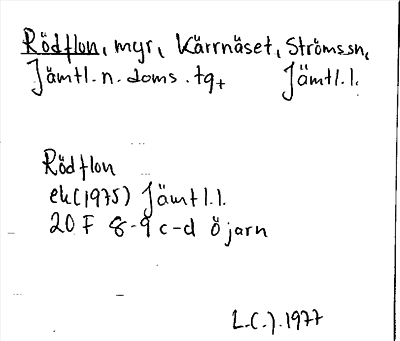 Rödflon, myr, Kärrnäset, Ströms sn,
Jämtl. n. doms. tg, Jämtl. l.
Rödflon
ek (1975) Jämt l. l.
20 F 8-9 c-d Öjarn
L.C.J. 1977